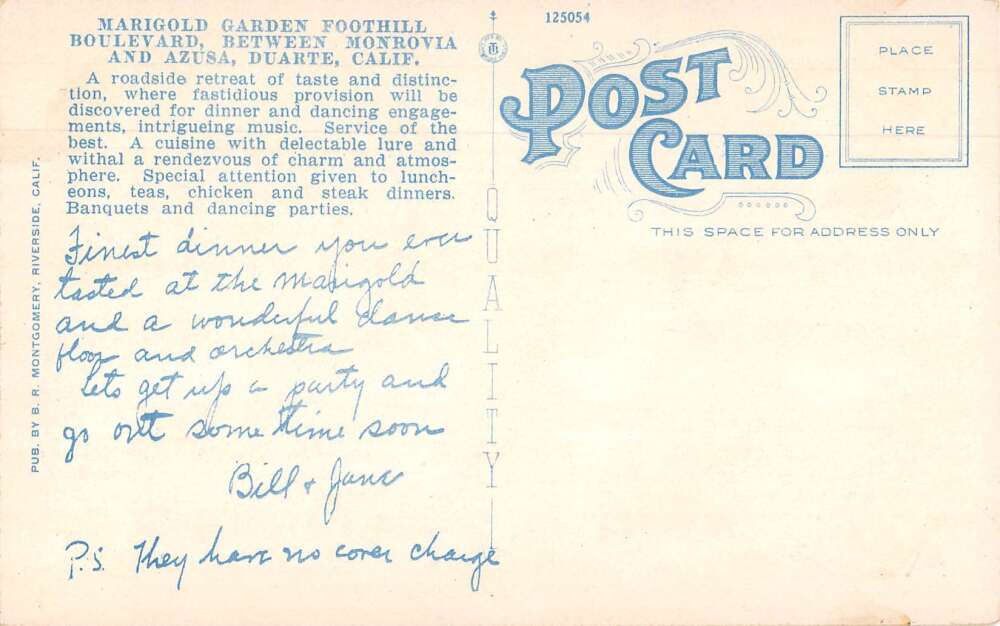 MARIGOLD GARDEN FOOTHILL
BOULEVARD, BETWEEN MONROVIA
AND AZUSA, DUARTE, CALIF.
A roadside retreat of taste and distinc-
tion, where fastidious provision will be
discovered for dinner and dancing engage-
ments, intrigueing music. Service of the
best. A cuisine with delectable lure and
withal a rendezvous of charm and atmos-
phere. Special attention given to lunch-
eons, teas, chicken and steak dinners.
Banquets and dancing parties.
Finest dinner you ever
tasted at the Marigold
and a wonderful dance
floor and orchestra
Lets get up a party and
go out some time soon
Bill + Jane
P.S. They have no cover charge
PUB. BY B. R. MONTGOMERY, RIVERSIDE, CALIF.
QUALITY
125054
POST
CARD
PLACE
STAMP
HERE
THIS SPACE FOR ADDRESS ONLY